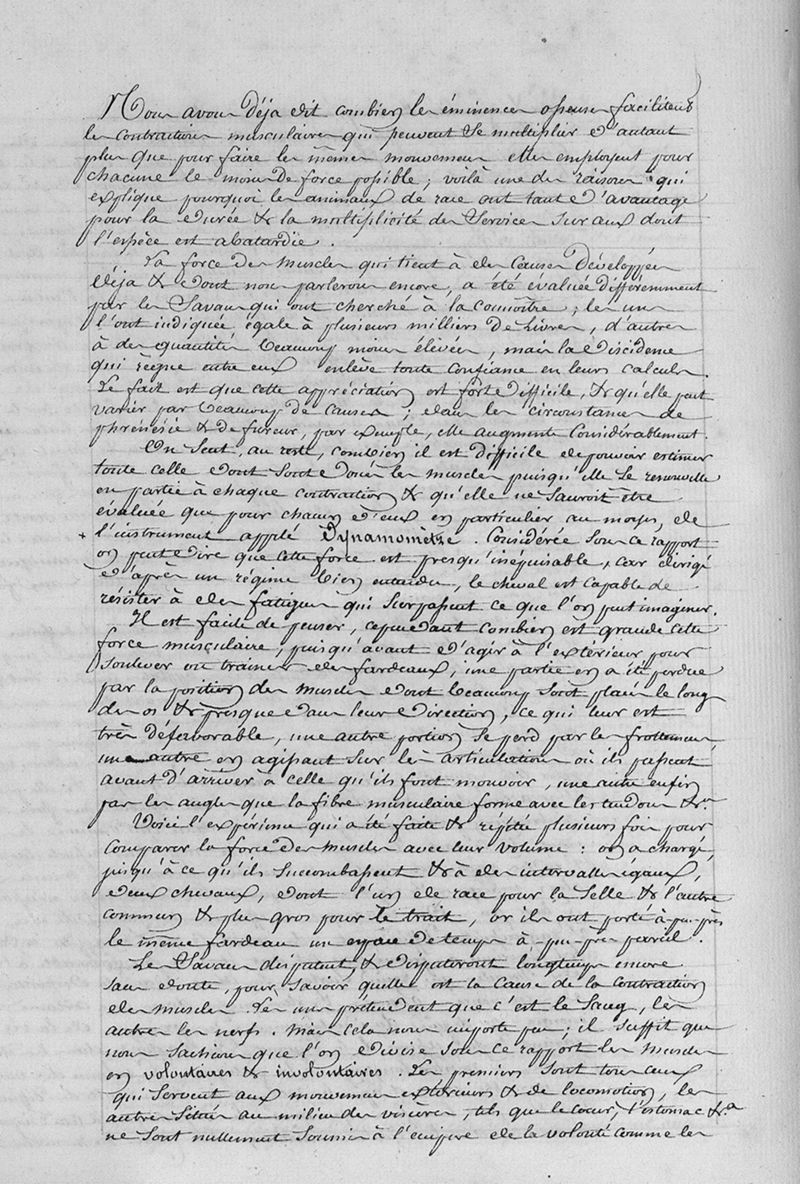 Nous avons déja dit combien les éminences osseuses facilitent
les contractions musculaires qui peuvent se multiplier d'autant
plus que pour faire les mêmes mouvemens elles employent pour
chacune le moins de force possible ; voilà une des raisons qui
explique pourquoi les animaux de race ont tant d'avantage
pour la durée & la multiplicité des services sur aux dont
l'espèce est abatardie.
La force des muscles qui tient à des causes développées
déja & dont nous parlerons encore, a été évaluée différemment
par les Savans qui ont cherché à la connoître ; les uns
l'ont indiquée égale à plusieurs milliers de Livres, d'autres
à des quantités beaucoup moins élevées, mais la discidence
qui règne entre eux enlève toute confiance en leurs calculs.
Le fait est que cette appréciation est forte difficile, & qu'elle peut
varier par beaucoup de causes ; dans les circonstances de
phrénésie & de fureur, par exemple, elle augmente considérablement.
On sent, au reste, combien il est difficile de pouvoir estimer
toute celle dont sont doués les muscles puisqu'elle se renouvelle
en partie à chaque contraction & qu'elle ne sauroit être
évaluée que pour chacun d'eux en particulier au moyen de
+ l'instrument appelé Dynamomètre. Considérée sous ce rapport
on peut dire que cette force est presqu'inépuisable, car dirigé
d'après un régime bien entendu, le cheval est capable de
résister à des fatigues qui surpassent ce que l'on peut imaginer.
Il est facile de penser, cependant combien est grande cette
force musculaire, puisqu'avant d'agir à l'extérieur pour
soulever ou trainer des fardeaux, une partie en a été perdue
par la position des muscles dont beaucoup sont placés le long
des os & presque dans leur direction, ce qui leur est
très défavorable, une autre portion se perd par les frottemens,
une autre en agissant sur les articulations où ils passent
avant d'arriver à celle qu'ils font mouvoir, une autre enfin
par les angles que la fibre musculaire forme avec les tendons &a
Voici l'expérience qui a été faite & répétée plusieurs fois pour
comparer la force des muscles avec leur volume : on a chargé,
jusqu'à ce qu'ils succombassent & à des intervalles égaux,
deux chevaux, dont l'un de race pour la selle & l'autre
commun & plus gros pour le trait, or ils ont porté à-peu-près
le même fardeau un espace de temps à-peu-près pareil.
Les Savans disputent, & disputeront longtemps encore
sans doute, pour savoir quelle est la cause de la contraction
des muscles. Les uns prétendent que c'est le sang, les
autres les nerfs. Mais cela nous importe peu ; il suffit que
nous sachions que l'on divise sous ce rapport les muscles
en volontaires & involontaires. Les premiers sont tous ceux
qui servent aux mouvemens extérieurs & de locomotion, les
autres situés au milieu des viscères, tels que le cœur, l'estomac &a
ne sont nullement soumis à l'empire de la volonté comme les